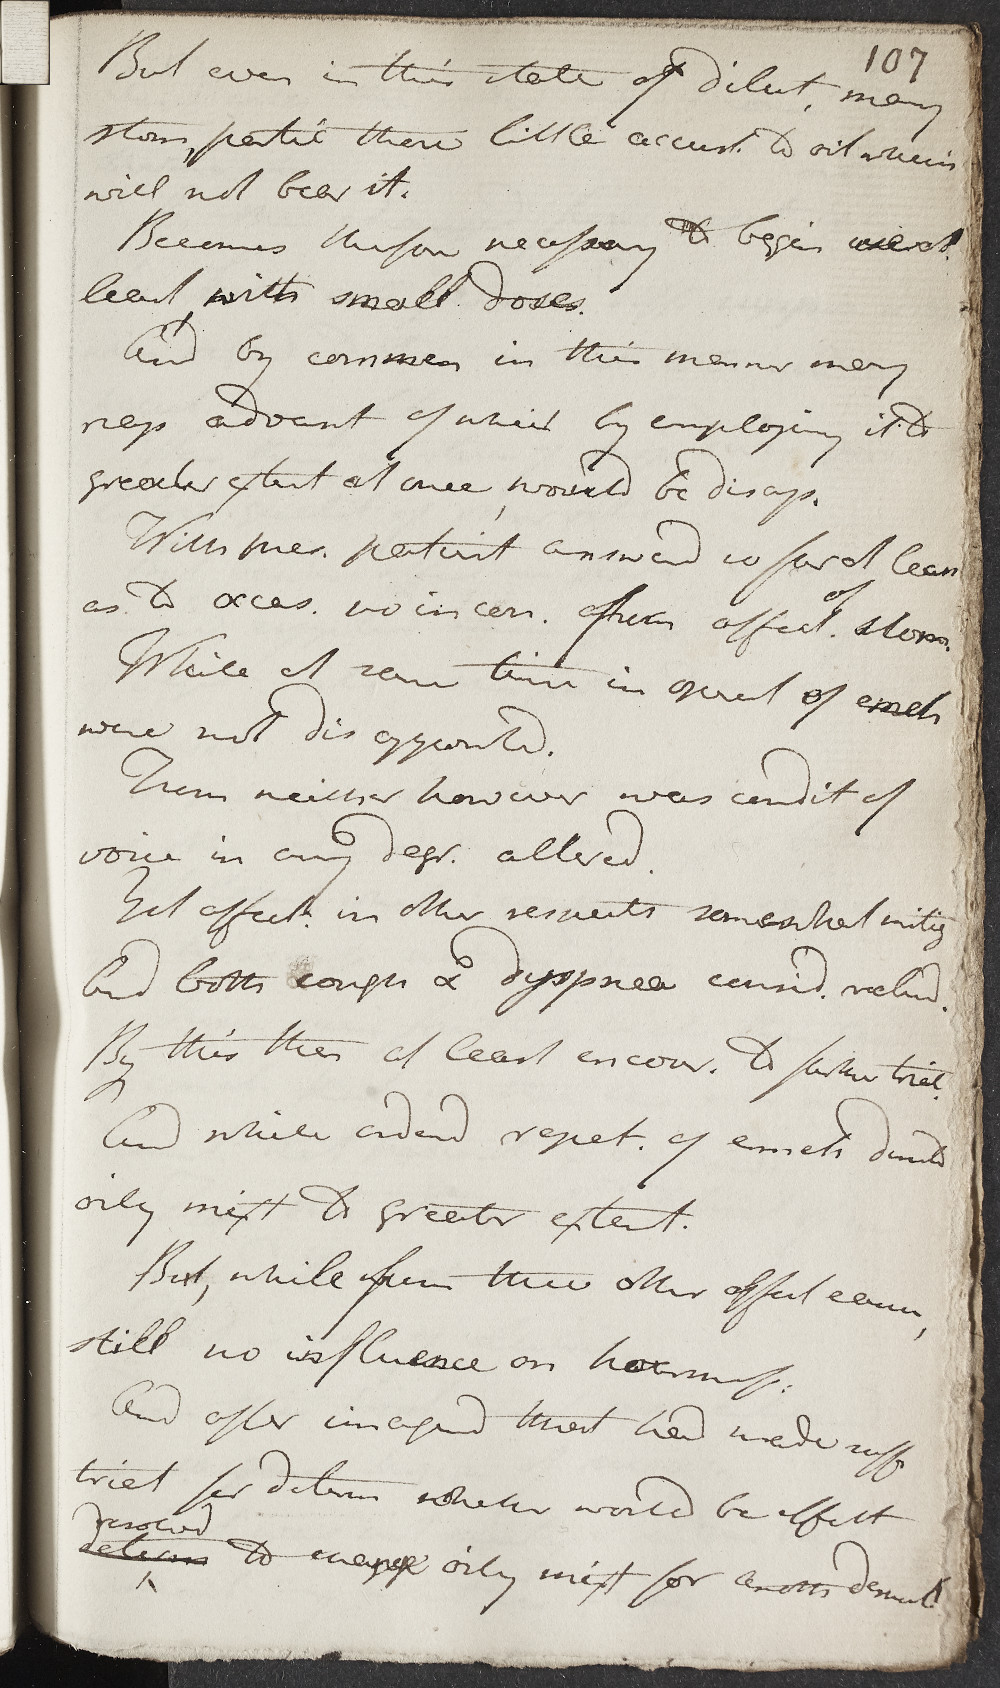 107
But even in this state of dilut, many
stom, partic those little accust. to oil wherein
will not bear it.
Becomes therefore necessary to begin at
least, with small doses.
And by commen in this manner many
reap advant of which by employing it to
greater extent at once, would be disap.
With pres. patient answerd so far at least
as to occas. no incon. from affect. of stom.
While at same time in operat of emets
were not disappointed.
From neither however was condit of
voice in any degr. altered.
Yet affect. in other respects somewhat mitig
And both cough & dyspnea consid. reliev.
By this then at least encour. to farther trial.
And while orderd repet. of emets directed
oily mixt to greater extent.
But, while from these other effect,
still no influence on hoarseness.
And after imagend that had made suff
trial for determ whether would be effect
resolved
determ to change oily mixt for another demulct